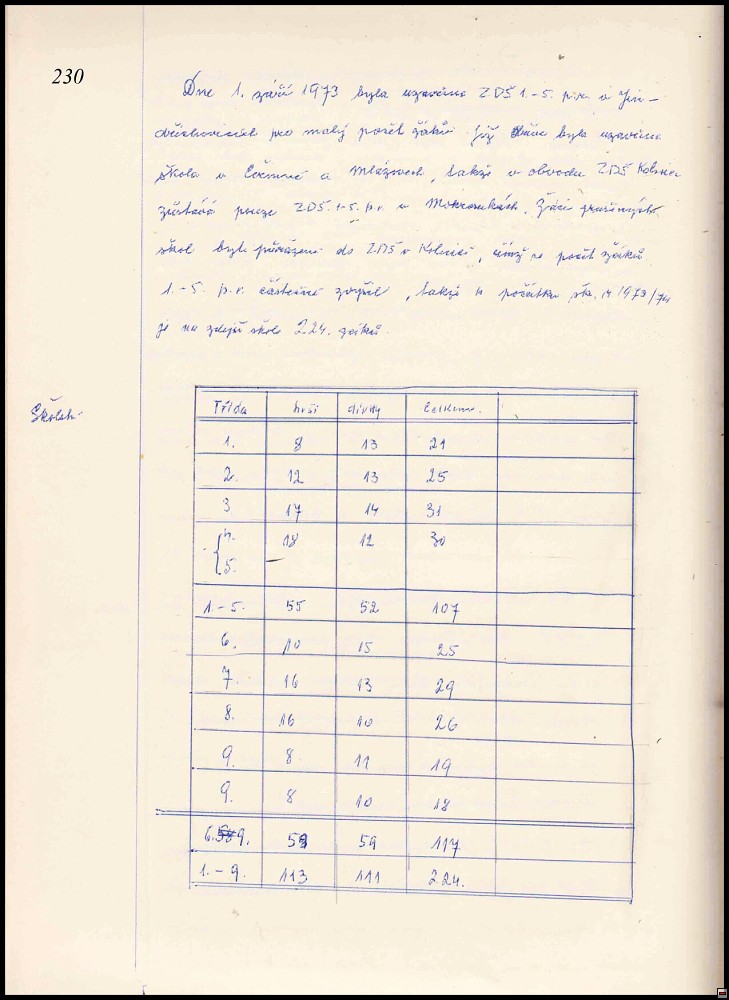 230
Dne 1. září 1973 byla uzavřena ZDŠ 1.-5. p.r. v Jin-
dřichovicích pro malý počet žáků. Již dříve byla uzavřena
škola v Čermné a Mlázovech, takže v obvodu ZDŠ Kolinec
zůstává pouze ZDŠ 1-5. p.r. v Mokrosukách. Žáci zrušených
škol byli převedeni do ZDŠ v Kolinci, čímž se počet žáků
1.-5. p.r. částečně zvýšil, takže k počátku šk. r. 1973/74
je na zdejší škole 224 žáků.
Školství
Třída hoši dívky Celkem.
1. 8 13 21
2. 12 13 25
3 17 14 31
4. 18 12 30
5.
1.-5. 55 52 107
6. 10 15 25
7. 16 13 29
8. 16 10 26
9. 8 11 19
9. 8 10 18
6. 9. 58 59 117
1.-9. 113 111 224.